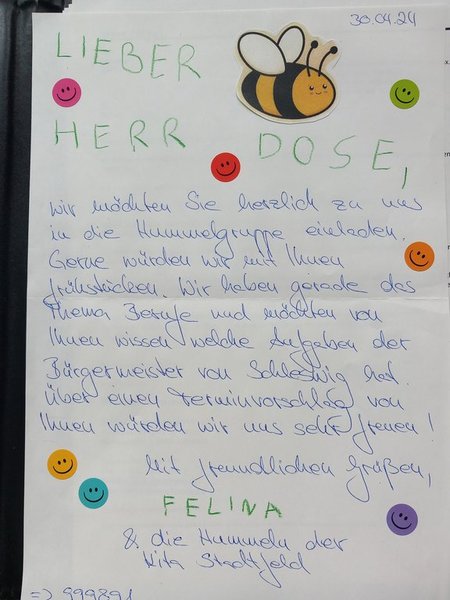 30.04.24
LIEBER
HERR DOSE,
wir möchten Sie herzlich zu uns
in die Hummelgruppe einladen.
Gerne würden wir mit Ihnen
frühstücken. Wir haben gerade das
Thema Berufe und möchten von
Ihnen wissen welche Aufgaben der
Bürgermeister von Schleswig hat.
Über einen Terminvorschlag von
Ihnen würden wir uns sehr freuen!
Mit freundlichen Grüßen,
FELINA
& die Hummeln der
Kita Stadtfeld
=> 999891